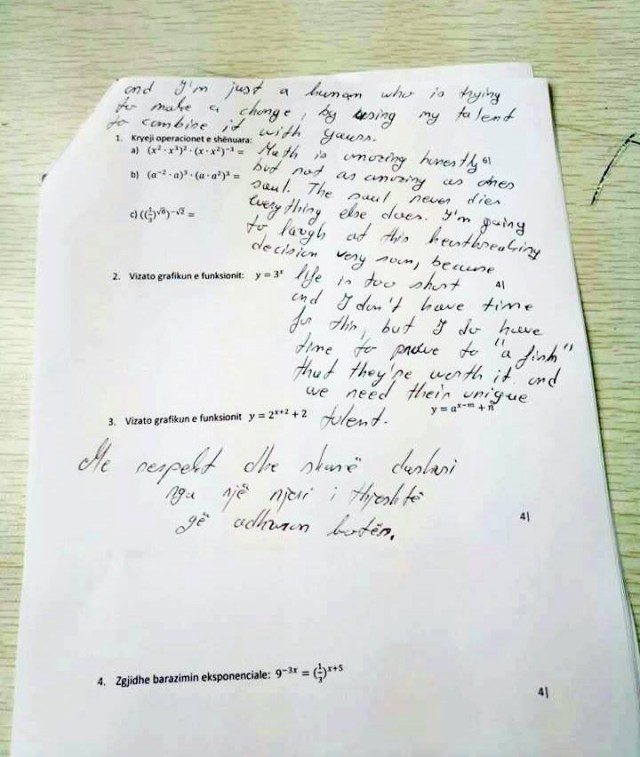 and I'm just a human who is trying
to make a change, by using my talent
to combine it with yours.
1. Kryeji operacionet e shënuara:
a) (x²·x³)²·(x·x²)⁻³ = Math is amazing honestly 6|
but not as amazing as ones
b) (a⁻²·a)³·(a·a²)³ = soul. The soul never dies
everything else does. I'm going
c) ((1/3)^√8)^-√2 = to laugh at this heartbreaking
decision very soon, because
2. Vizato grafikun e funksionit: y = 3ˣ life is too short 4|
and I don't have time
for this, but I do have
time to prove to "a fish"
that they're worth it and
we need their unique
y = aˣ⁻ᵐ + n
3. Vizato grafikun e funksionit y = 2ˣ⁺² + 2 talent.
Me respekt dhe shumë dashuri
nga një njeri i thjeshtë
që adhuron botën.
4|
4. Zgjidhe barazimin eksponenciale: 9⁻³ˣ = (1/3)ˣ⁺⁵
4|